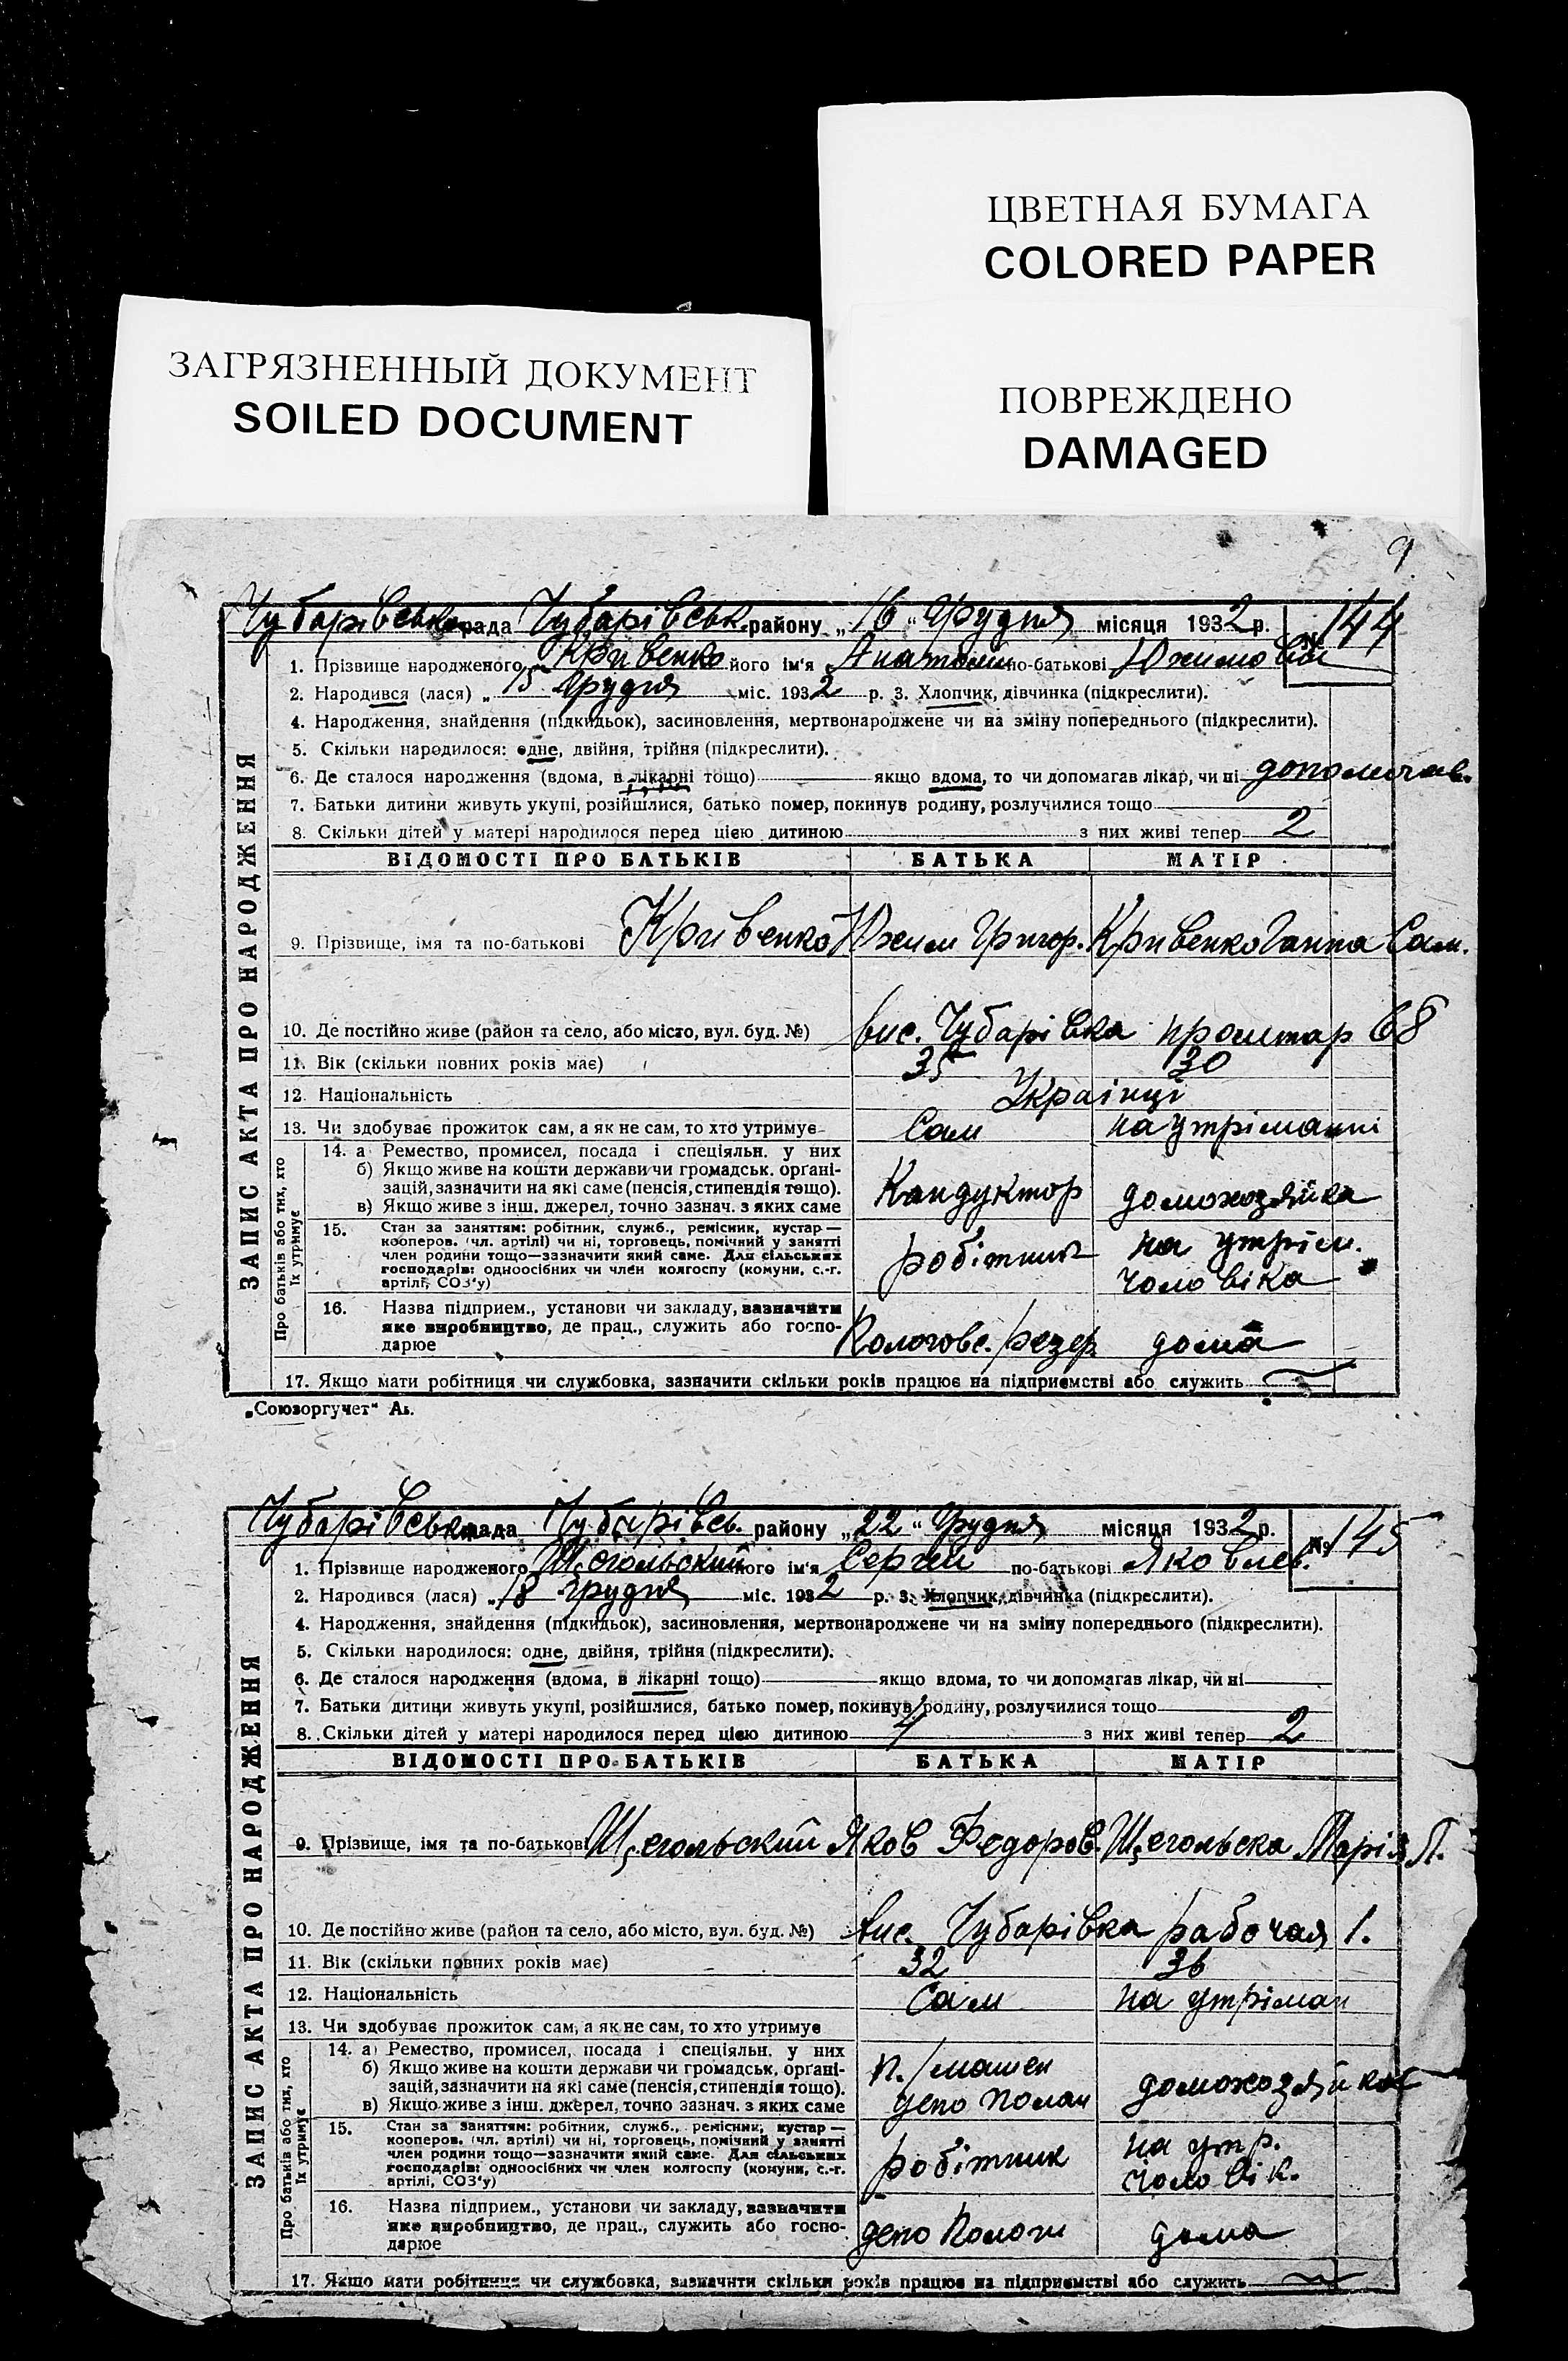 ЦВЕТНАЯ БУМАГА
COLORED PAPER
ЗАГРЯЗНЕННЫЙ ДОКУМЕНТ
SOILED DOCUMENT
ПОВРЕЖДЕНО
DAMAGED
9
Чубарівська рада Чубарівськ. району „16“ Грудня місяця 1932 р. № 144
1. Прізвище народженого Кривенко його ім'я Анатолій по-батькові Юхимовіч
2. Народився (лася) „15 Грудня міс. 1932 р. 3. Хлопчик, дівчинка (підкреслити).
4. Народження, знайдення (підкидьок), засиновлення, мертвонароджене чи на зміну попереднього (підкреслити).
5. Скільки народилося: одне, двійня, трійня (підкреслити).
6. Де сталося народження (вдома, в лікарні тощо) якщо вдома, то чи допомагав лікар, чи ні допомагав.
7. Батьки дитини живуть укупі, розійшлися, батько помер, покинув родину, розлучилися тощо
8. Скільки дітей у матері народилося перед цією дитиною з них живі тепер 2
ЗАПИС АКТА ПРО НАРОДЖЕННЯ
ВІДОМОСТІ ПРО БАТЬКІВ БАТЬКА МАТІР
9. Прізвище, імя та по-батькові Кривенко Юхим Григор. Кривенко Ганна Сам.
10. Де постійно живе (район та село, або місто, вул. буд. №) вис. Чубарівка пролетар 68
11. Вік (скільки повних років має) 35 30
12. Національність Українці
13. Чи здобуває прожиток сам, а як не сам, то хто утримує Сам на утріманні
Про батьків або тих, хто їх утримує
14. а Ремество, промисел, посада і спеціяльн. у них
б) Якщо живе на кошти держави чи громадськ. органі-
зацій, зазначити на які саме (пенсія, стипендія тощо).
в) Якщо живе з інш. джерел, точно зазнач. з яких саме
Кандуктор домохозяйка
15. Стан за заняттям: робітник, служб., ремісник, кустар—
кооперов. (чл. артілі) чи ні, торговець, помічний у занятті
член родини тощо—зазначити який саме. Для сільських
господарів: одноосібних чи член колгоспу (комуни, с.-г.
артілі, СОЗ'у)
робітник на утрім.
чоловіка
16. Назва підприєм., установи чи закладу, зазначити
яке виробництво, де прац., служить або госпо-
дарює
Пологовс. резер. дома
17. Якщо мати робітниця чи службовка, зазначити скільки років працює на підприємстві або служить
„Союзоргучет“
Чубарівська рада Чубарівсь. району „22“ Грудня місяця 1932 р. № 145
1. Прізвище народженого Щегольский його ім'я Сергій по-батькові Яковлев.
2. Народився (лася) „18 Грудня міс. 1932 р. 3. Хлопчик, дівчинка (підкреслити).
4. Народження, знайдення (підкидьок), засиновлення, мертвонароджене чи на зміну попереднього (підкреслити).
5. Скільки народилося: одне, двійня, трійня (підкреслити).
6. Де сталося народження (вдома, в лікарні тощо) якщо вдома, то чи допомагав лікар, чи ні
7. Батьки дитини живуть укупі, розійшлися, батько помер, покинув родину, розлучилися тощо
8. Скільки дітей у матері народилося перед цією дитиною 4 з них живі тепер 2
ЗАПИС АКТА ПРО НАРОДЖЕННЯ
ВІДОМОСТІ ПРО БАТЬКІВ БАТЬКА МАТІР
9. Прізвище, імя та по-батькові Щегольский Яков Федоров. Щегольска Марія П.
10. Де постійно живе (район та село, або місто, вул. буд. №) вис. Чубарівка рабочая 1.
11. Вік (скільки повних років має) 32 36
12. Національність Сам на утріман
13. Чи здобуває прожиток сам, а як не сам, то хто утримує
Про батьків або тих, хто їх утримує
14. а) Ремество, промисел, посада і спеціяльн. у них
б) Якщо живе на кошти держави чи громадськ. органі-
зацій, зазначити на які саме (пенсія, стипендія тощо).
в) Якщо живе з інш. джерел, точно зазнач. з яких саме
п./машен домохозяйка
депо
15. Стан за заняттям: робітник, служб., ремісник, кустар—
кооперов. (чл. артілі) чи ні, торговець, помічний у занятті
член родини тощо—зазначити який саме. Для сільських
господарів: одноосібних чи член колгоспу (комуни, с.-г.
артілі, СОЗ'у)
робітник на утр.
чоловік.
16. Назва підприєм., установи чи закладу, зазначити
яке виробництво, де прац., служить або госпо-
дарює
депо Пологи дома
17. Якщо мати робітниця чи службовка, зазначити скільки років працює на підприємстві або служить